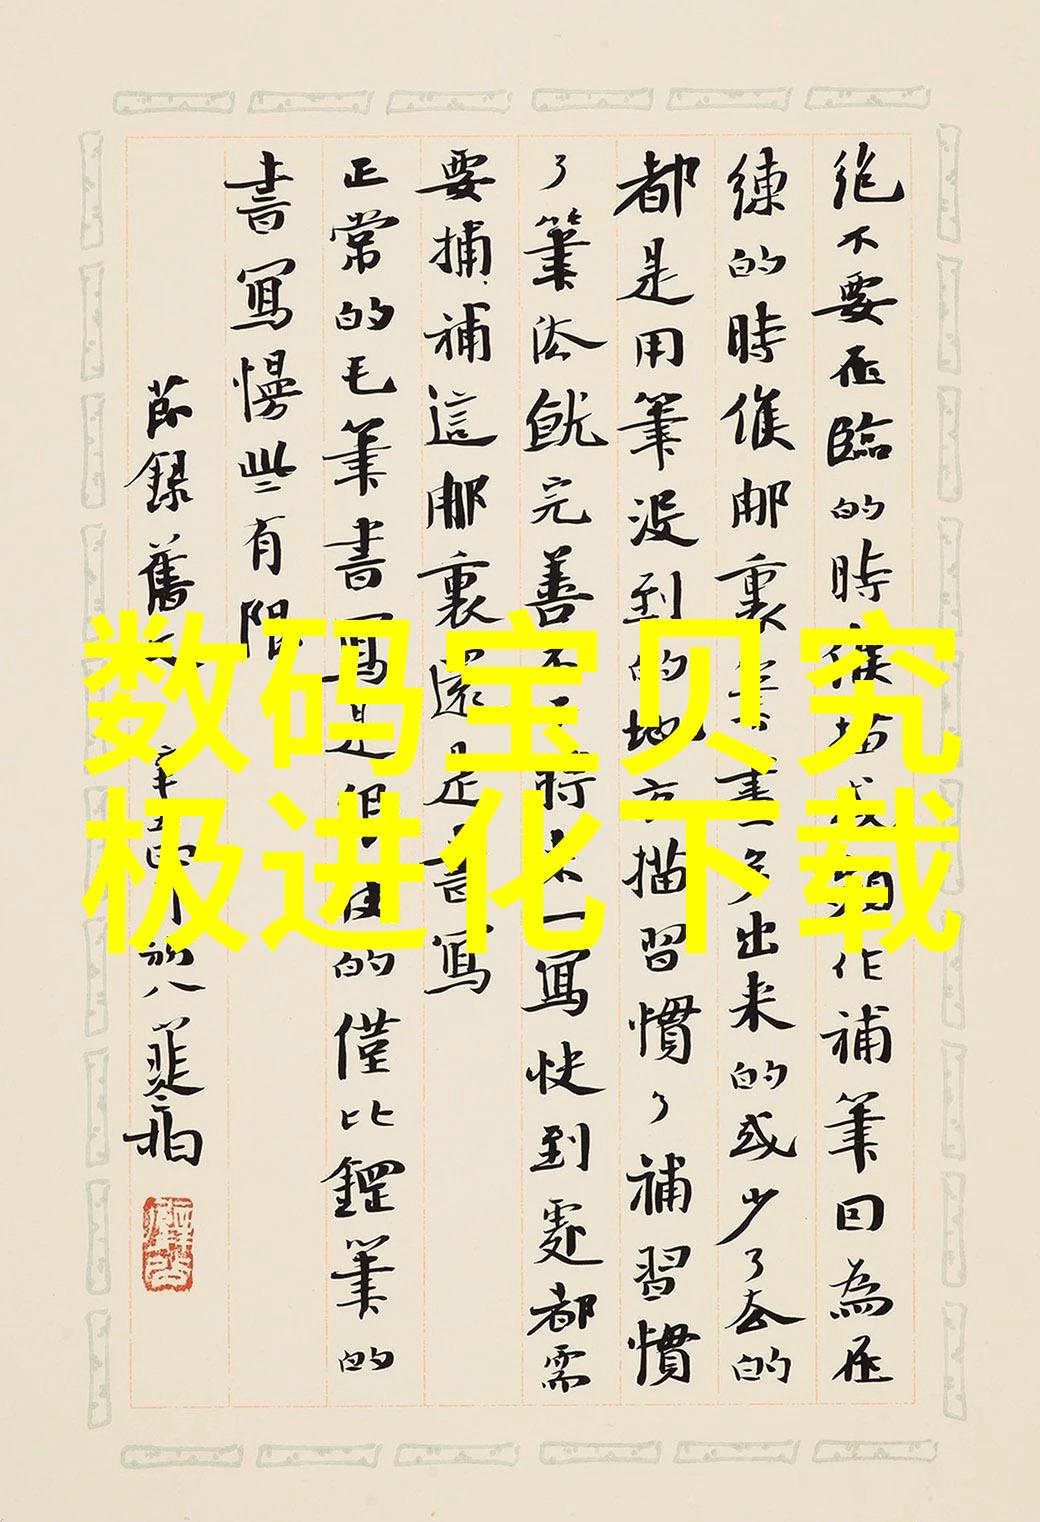 絶不要在臨的時候描或者作補筆因為在
練的時候那裏筆畫多出來的或少了去的
都是用筆没到的地方描習慣了補習慣
了筆法就完善不了時間一寫快到處都需
要補補這那裏還是書寫
正常的毛筆書寫是很慢的僅比鋼筆的
書寫慢些有限
節録舊文辛卯初八
数码宝贝究
极进化下载